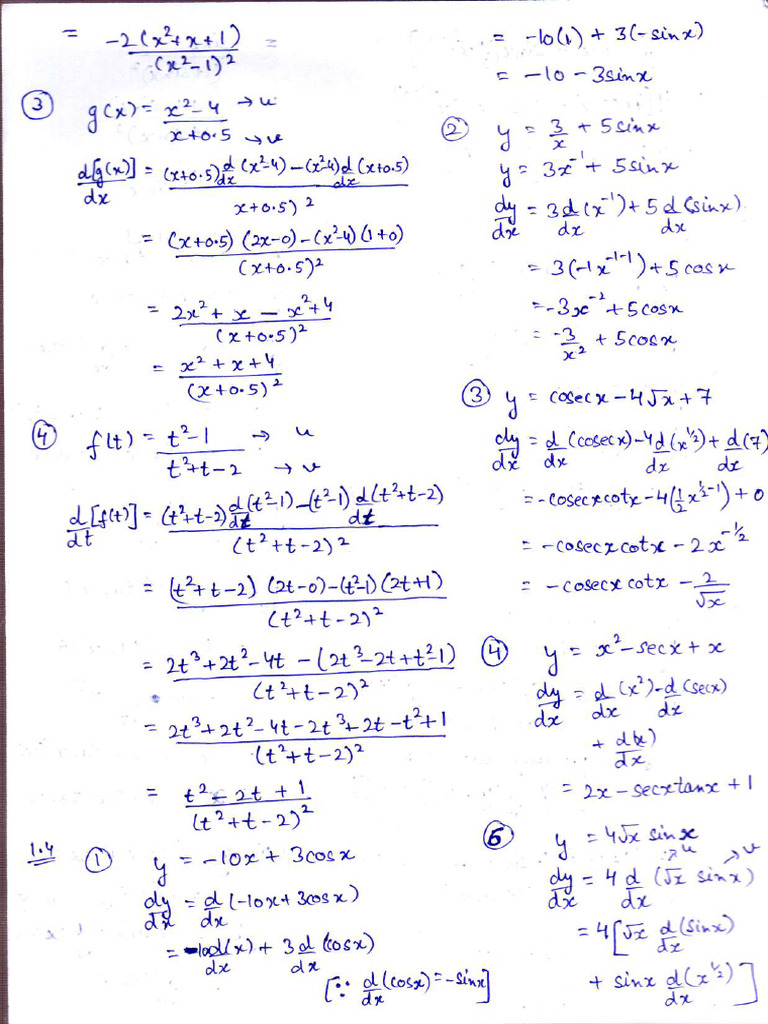 = -2(x²+x+1) / (x²-1)² =
③ g(x) = x²-4 → u / x+0.5 → v
d[g(x)]/dx = (x+0.5) d/dx (x²-4) - (x²-4) d/dx (x+0.5) / x+0.5)²
= (x+0.5) (2x-0) - (x²-4) (1+0) / (x+0.5)²
= 2x² + x - x²+4 / (x+0.5)²
= x² + x + 4 / (x+0.5)²
④ f(t) = t²-1 → u / t²+t-2 → v
d/dt [f(t)] = (t²+t-2) d/dt (t²-1) - (t²-1) d/dt (t²+t-2) / (t²+t-2)²
= (t²+t-2) (2t-0) - (t²-1) (2t+1) / (t²+t-2)²
= 2t³+2t²-4t - (2t³-2t+t²-1) / (t²+t-2)²
= 2t³+2t²-4t-2t³+2t-t²+1 / (t²+t-2)²
= t² - 2t + 1 / (t²+t-2)²
1.4 ① y = -10x + 3cosx
dy/dx = d/dx (-10x+3cosx)
= -10d(x)/dx + 3d/dx (cosx)
[∵ d/dx (cosx) = -sinx]
= -10(1) + 3(-sinx)
= -10 - 3sinx
② y = 3/x + 5sinx
y = 3x⁻¹ + 5sinx
dy/dx = 3d/dx (x⁻¹) + 5d/dx (sinx)
= 3(-1x⁻¹⁻¹) + 5cosx
= -3x⁻² + 5cosx
= -3/x² + 5cosx
③ y = cosecx - 4√x + 7
dy/dx = d/dx (cosecx) - 4d/dx (x^½) + d/dx (7)
= -cosecxcotx - 4(½ x^½⁻¹) + 0
= -cosecxcotx - 2x^-1/2
= -cosecxcotx - 2/√x
④ y = x² - secx + x
dy/dx = d/dx (x²) - d/dx (secx)
+ d(x)/dx
= 2x - secxtanx + 1
⑤ y = 4√x sinx
dy/dx = 4 d/dx (√x sinx) u v
= 4[√x d/dx (sinx)
+ sinx d/dx (x^½)]